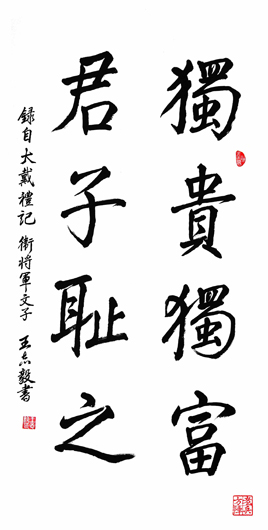 獨貴獨富
君子耻之
録自大戴禮記 衛将軍文子 王志毅書